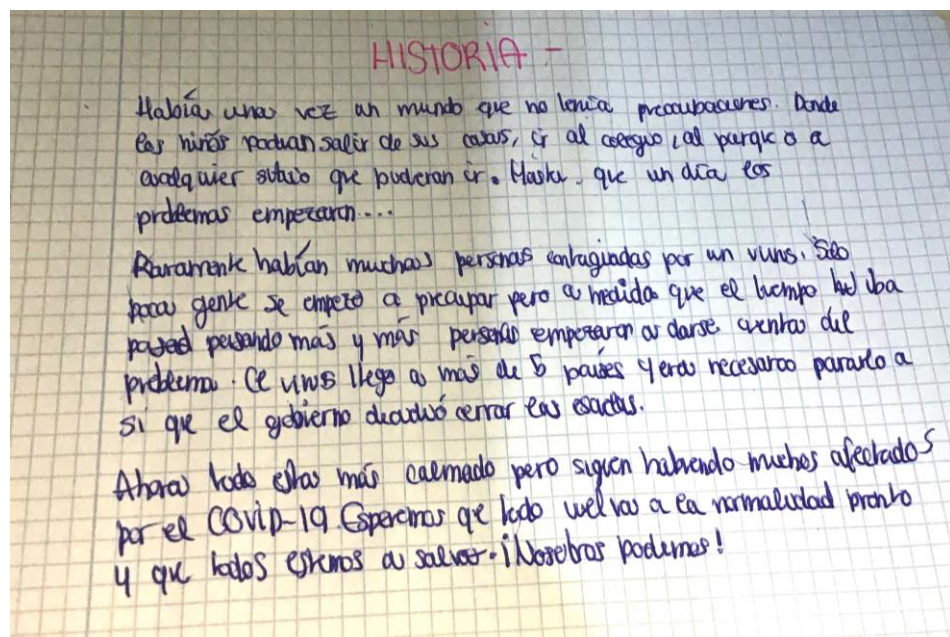 HISTORIA -
Había una vez un mundo que no tenía preocupaciones. Donde
los niños podían salir de sus casas, ir al colegio, al parque o a
cualquier sitio que pudieran ir. Hasta que un día los
problemas empezaron....
Raramente habían muchas personas contagiadas por un virus. Solo
poca gente se empezó a precupar pero a medida que el tiempo iba
pasando más y más personas empezaron a darse cuenta del
problema. El virus llego a mas de 5 países y era necesario pararlo a
si que el gobierno decidió cerrar las escuelas.
Ahora todo esta más calmado pero siguen habiendo muchos afectados
por el COVID-19 Esperemos que todo vuelva a la normalidad pronto
y que todos estemos a salvo. ¡Nosotros podemos!